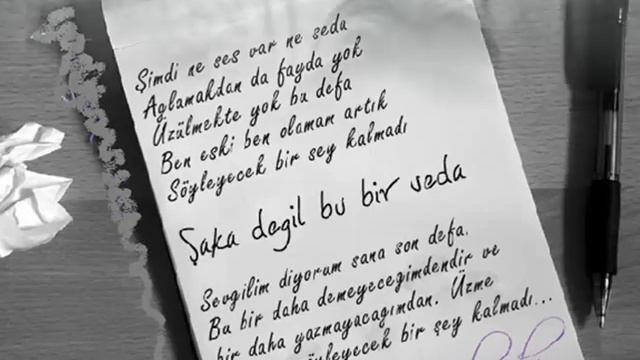 Şimdi ne ses var ne seda
Aglamakdan da fayda yok
Üzülmekte yok bu defa
Ben eski ben olamam artık
Söyleyecek bir sey kalmadı
Şaka degil bu bir veda
Sevgilim diyorum sana son defa.
Bu bir daha demeyecegimdendir ve
bir daha yazmayacagımdan. Üzme
söyleyecek bir şey kalmadı...